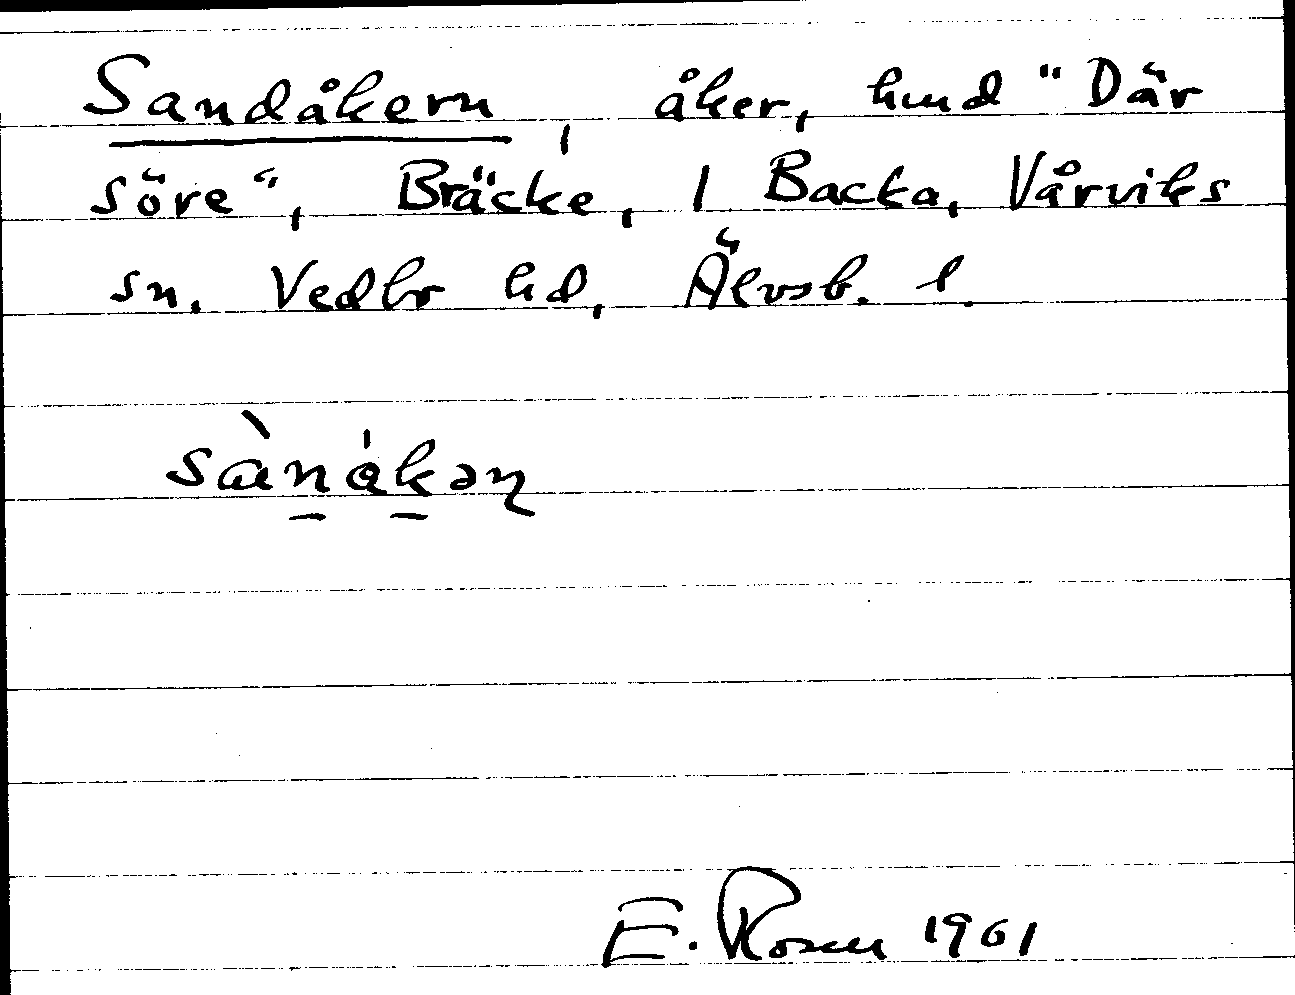 Sandåkern, åker, hmd "Där
söre", Bräcke, 1 Backa, Vårviks
sn. Vedbo hd, Älvsb. l.
sànåkən
E. Rosen 1961